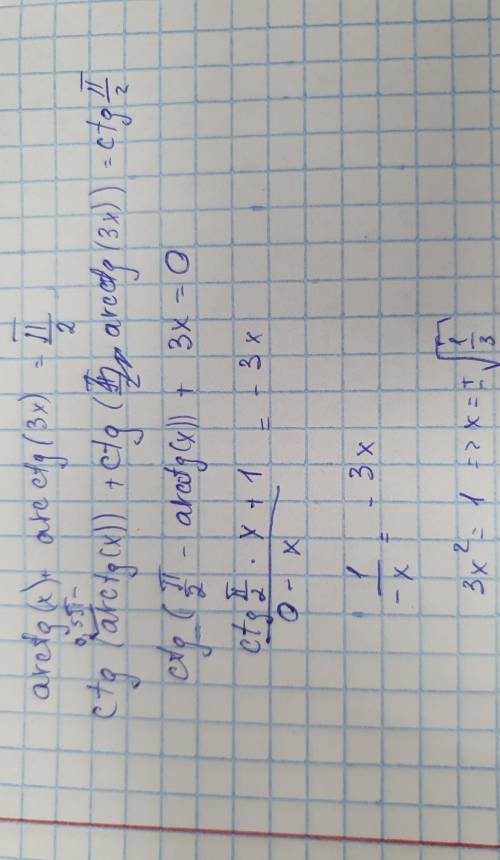 arctg(x) + arcctg(3x) = π/2
0,5π -
ctg (arctg(x)) + ctg ( arcctg(3x)) = ctg π/2
ctg (π/2 - arcctg(x)) + 3x = 0
ctg π/2 · x + 1 / 0 - x = - 3x
1 / -x = - 3x
3x² = 1 => x = ±√1/3